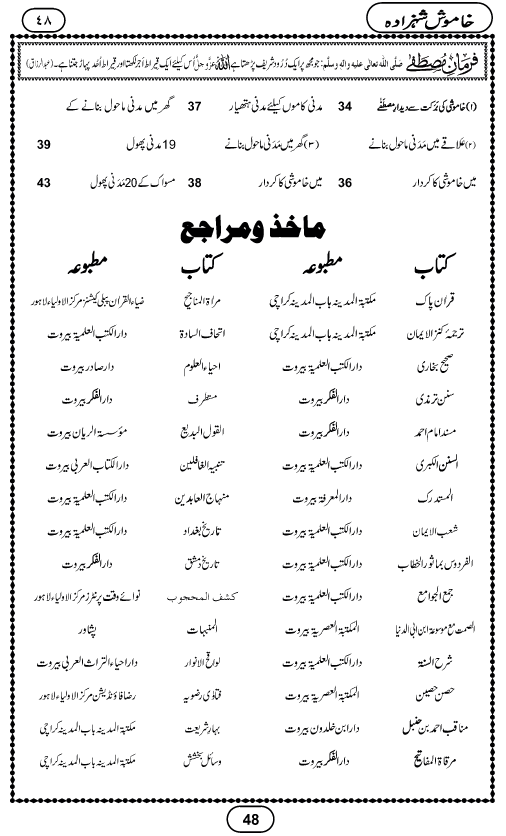 خاموش شہزادہ ٤٨
فرمانِ مصطفےٰ صلی اللہ تعالی علیہ والہ وسلم: جو مجھ پر ایک دُرُود شریف پڑھتا ہے اللہ عزوجل اُس کیلئے ایک قیراط اَجر لکھتا اور قیراط اُحد پہاڑ جتنا ہے۔ (عبدالرزاق)
(۱) خاموشی کی بَرَکت سے دیدارِ مصطفےٰ 34 مدنی کاموں کیلئے مدنی ہتھیار 37 گھر میں مدنی ماحول بنانے کے
(۲) علاقے میں مَدَنی ماحول بنانے (۳) گھر میں مَدَنی ماحول بنانے 19 مدنی پھول 39
میں خاموشی کا کردار 36 میں خاموشی کا کردار 38 مسواک کے 20 مَدَنی پھول 43
ماخذ و مراجع
کتاب مطبوعہ کتاب مطبوعہ
قران پاک مکتبۃ المدینہ باب المدینہ کراچی مراٰۃ المناجیح ضیاء القران پبلی کیشنز مرکز الاولیاء لاہور
ترجمۂ کنز الایمان مکتبۃ المدینہ باب المدینہ کراچی اتحاف السادۃ دار الکتب العلمیۃ بیروت
صحیح بخاری دار الکتب العلمیۃ بیروت احیاء العلوم دار صادر بیروت
سنن ترمذی دار الفکر بیروت مستطرف دار الفکر بیروت
مسند امام احمد دار الفکر بیروت القول البدیع مؤسسۃ الریان بیروت
السنن الکبری دار الکتب العلمیۃ بیروت تنبیہ الغافلین دار الکتاب العربی بیروت
المستدرک دار المعرفۃ بیروت منہاج العابدین دار الکتب العلمیۃ بیروت
شعب الایمان دار الکتب العلمیۃ بیروت تاریخ بغداد دار الکتب العلمیۃ بیروت
الفردوس بماثور الخطاب دار الکتب العلمیۃ بیروت تاریخ دمشق دار الفکر بیروت
جمع الجوامع دار الکتب العلمیۃ بیروت کشف المحجوب نوائے وقت پرنٹرز مرکز الاولیاء لاہور
الصمت مع موسوعۃ ابن ابی الدنیا المکتبۃ العصریۃ بیروت المنبہات پشاور
شرح السنۃ دار الکتب العلمیۃ بیروت لواقح الانوار دار احیاء التراث العربی بیروت
حصن حصین المکتبۃ العصریۃ بیروت فتاوٰی رضویہ رضا فاؤنڈیشن مرکز الاولیاء لاہور
مناقب احمد بن حنبل دار ابن خلدون بیروت بہار شریعت مکتبۃ المدینہ باب المدینہ کراچی
مرقاۃ المفاتیح دار الفکر بیروت وسائل بخشش مکتبۃ المدینہ باب المدینہ کراچی
48